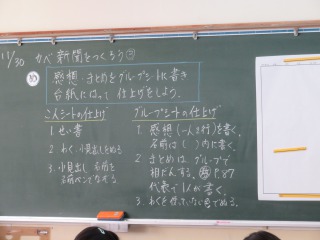 11/30 カベ新聞をつくろう③
め
感想・まとめをグループシートに書き
台紙にはって仕上げをしよう。
こ人シートの仕上げ
1. せい書
2. わく、小見出しをぬる
3. 小見出し、名前を
名前ペンでなぞる
グループシートの仕上げ
1. 感想(一人2行)を書く。
名前は( )内に書く。
2. まとめはグループで
相だんする。P.87
代表で1人が書く。
3. わくを使っていない色でぬる。